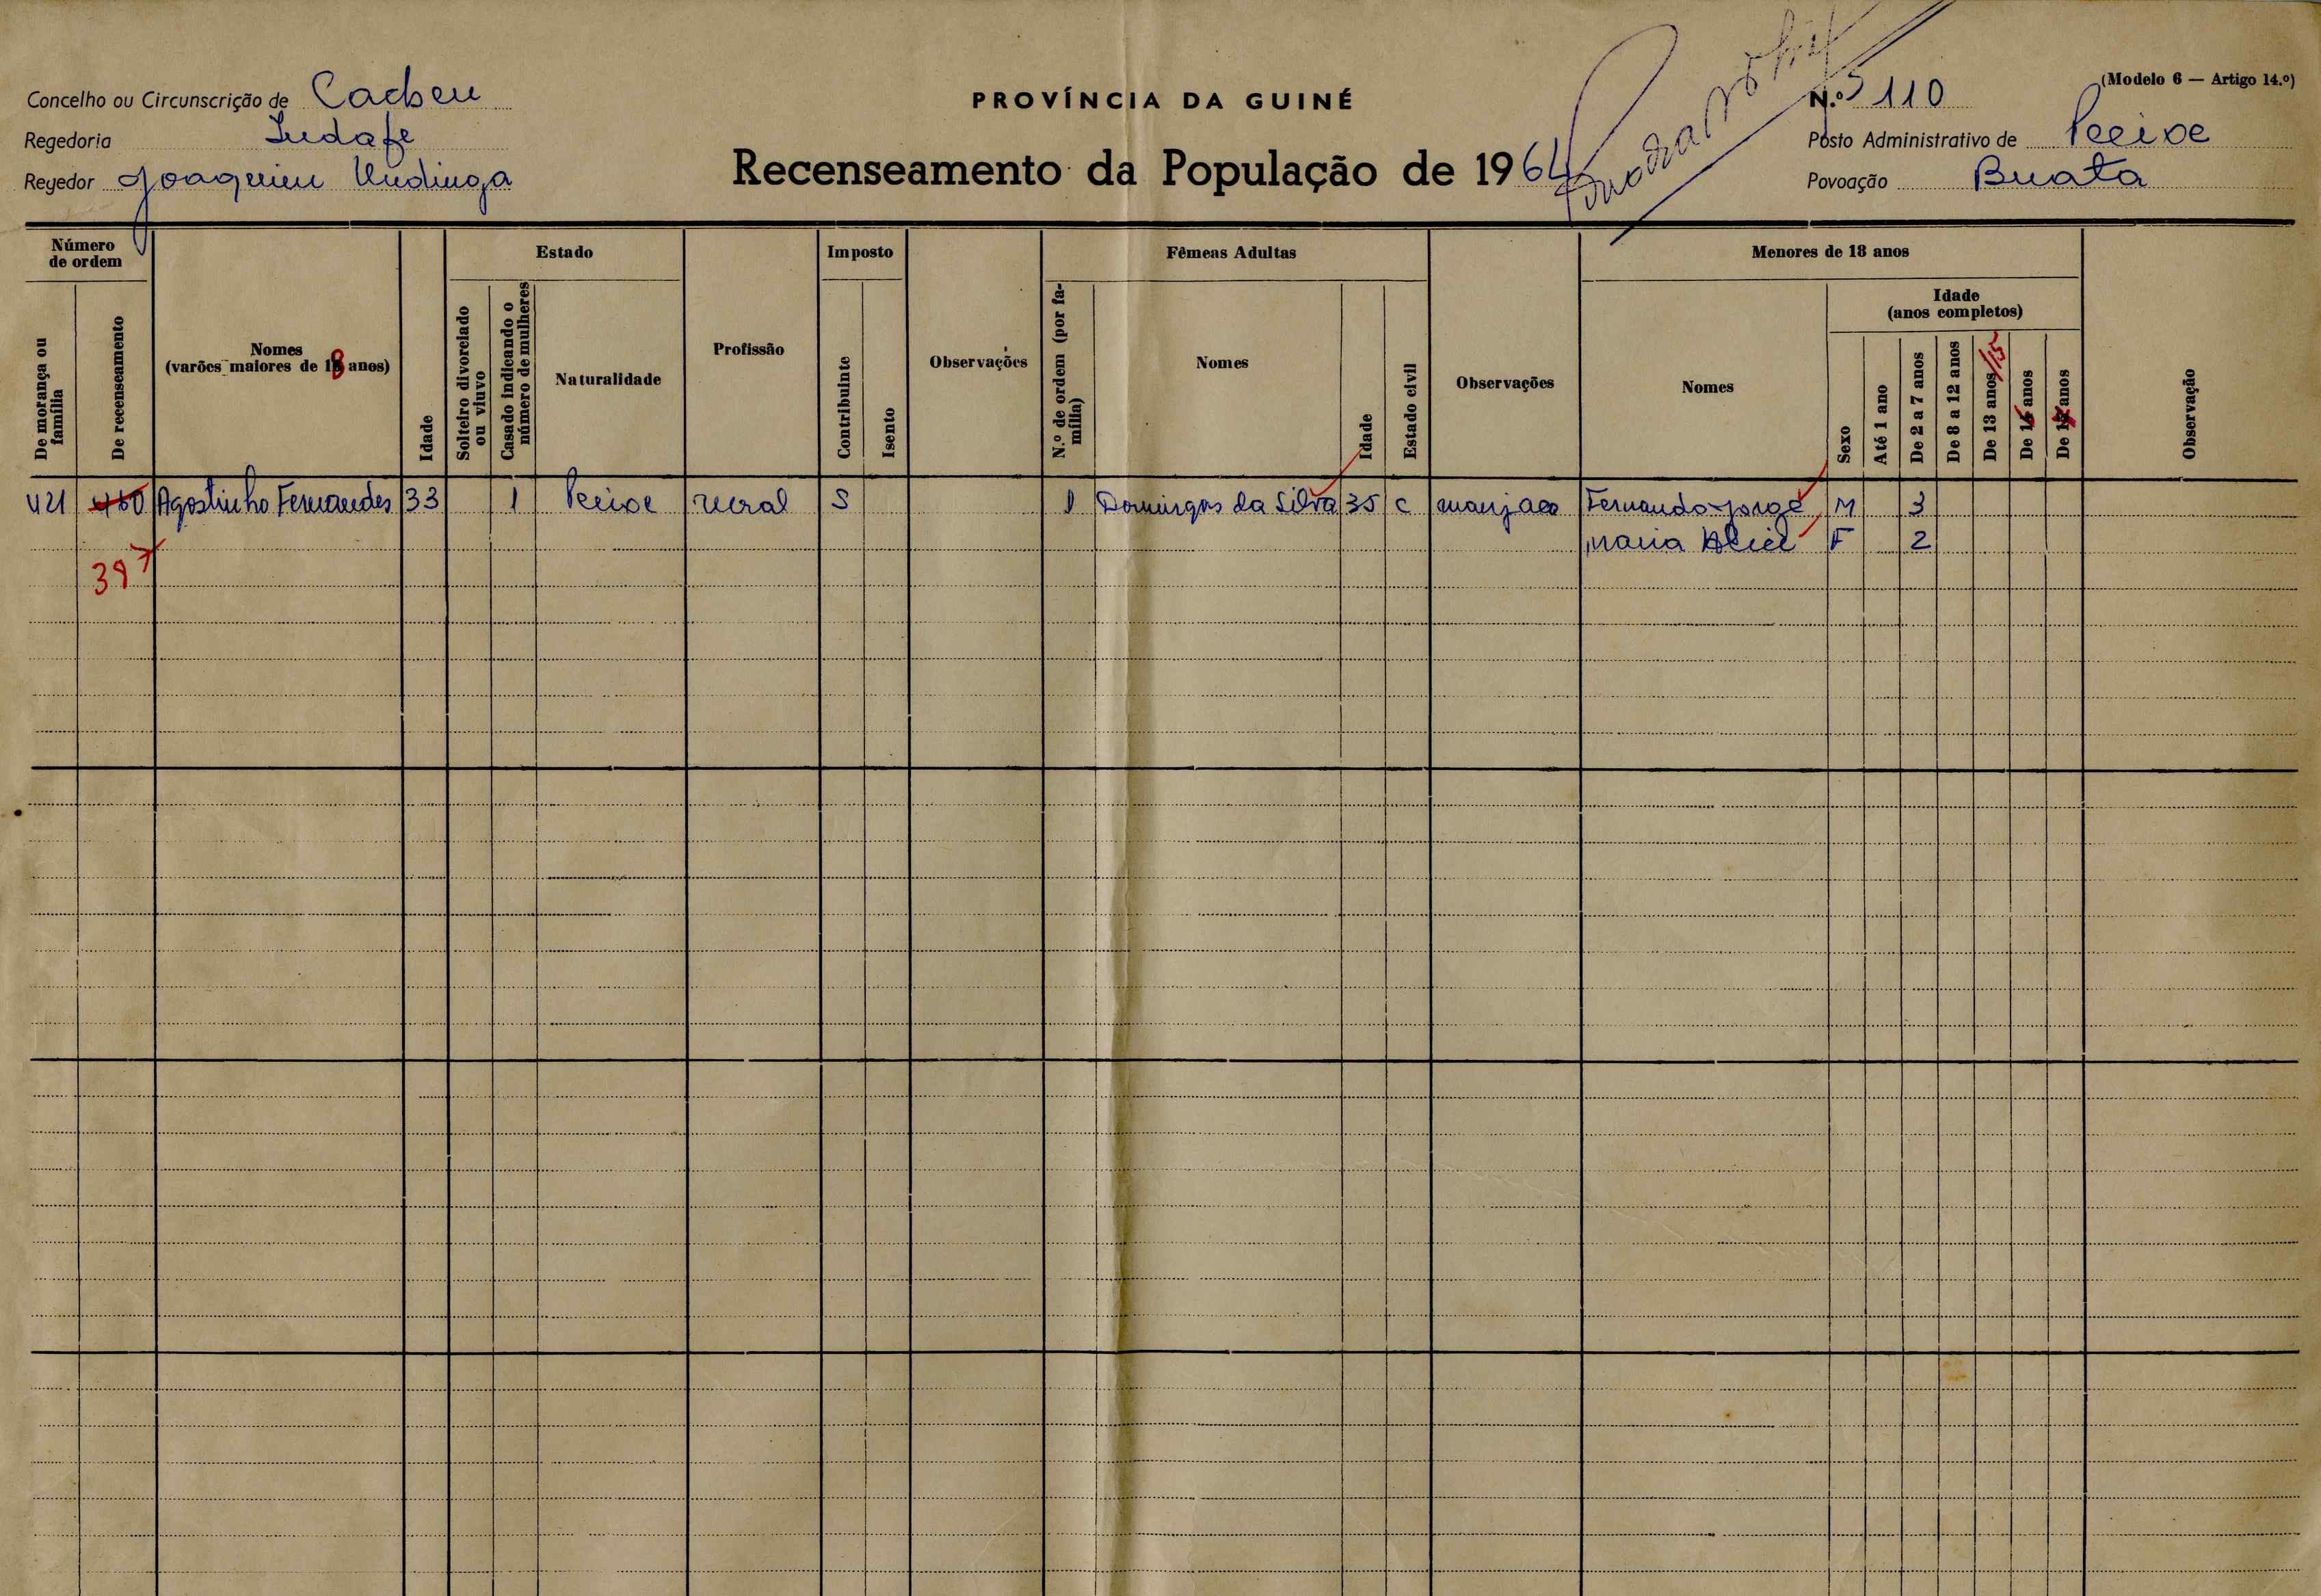 (Modelo 6 — Artigo 14.º)
Concelho ou Circunscrição de Cacheu
PROVÍNCIA DA GUINÉ
N.º 110
Regedoria
Posto Administrativo de Pecixe
Regedor Joaquim Undinga
Recenseamento da População de 1964
Povoação Buata
Número de ordem
De morança ou família
De recenseamento
Nomes (varões maiores de 18 anos)
Idade
Estado
Solteiro divorciado ou viuvo
Casado indicando o número de mulheres
Naturalidade
Profissão
Imposto
Contribuinte
Isento
Observações
Fêmeas Adultas
N.º de ordem (por família)
Nomes
Idade
Estado civil
Observações
Menores de 18 anos
Nomes
Sexo
Idade (anos completos)
Até 1 ano
De 2 a 7 anos
De 8 a 12 anos
De 13 anos /15
De anos
De anos
Observação
421 460 Agostinho Fernandes 33 1 Pecixe rural S 1 Domingas da Silva 35 C manjaco Fernando Jorge M 3
Maria F 2
397